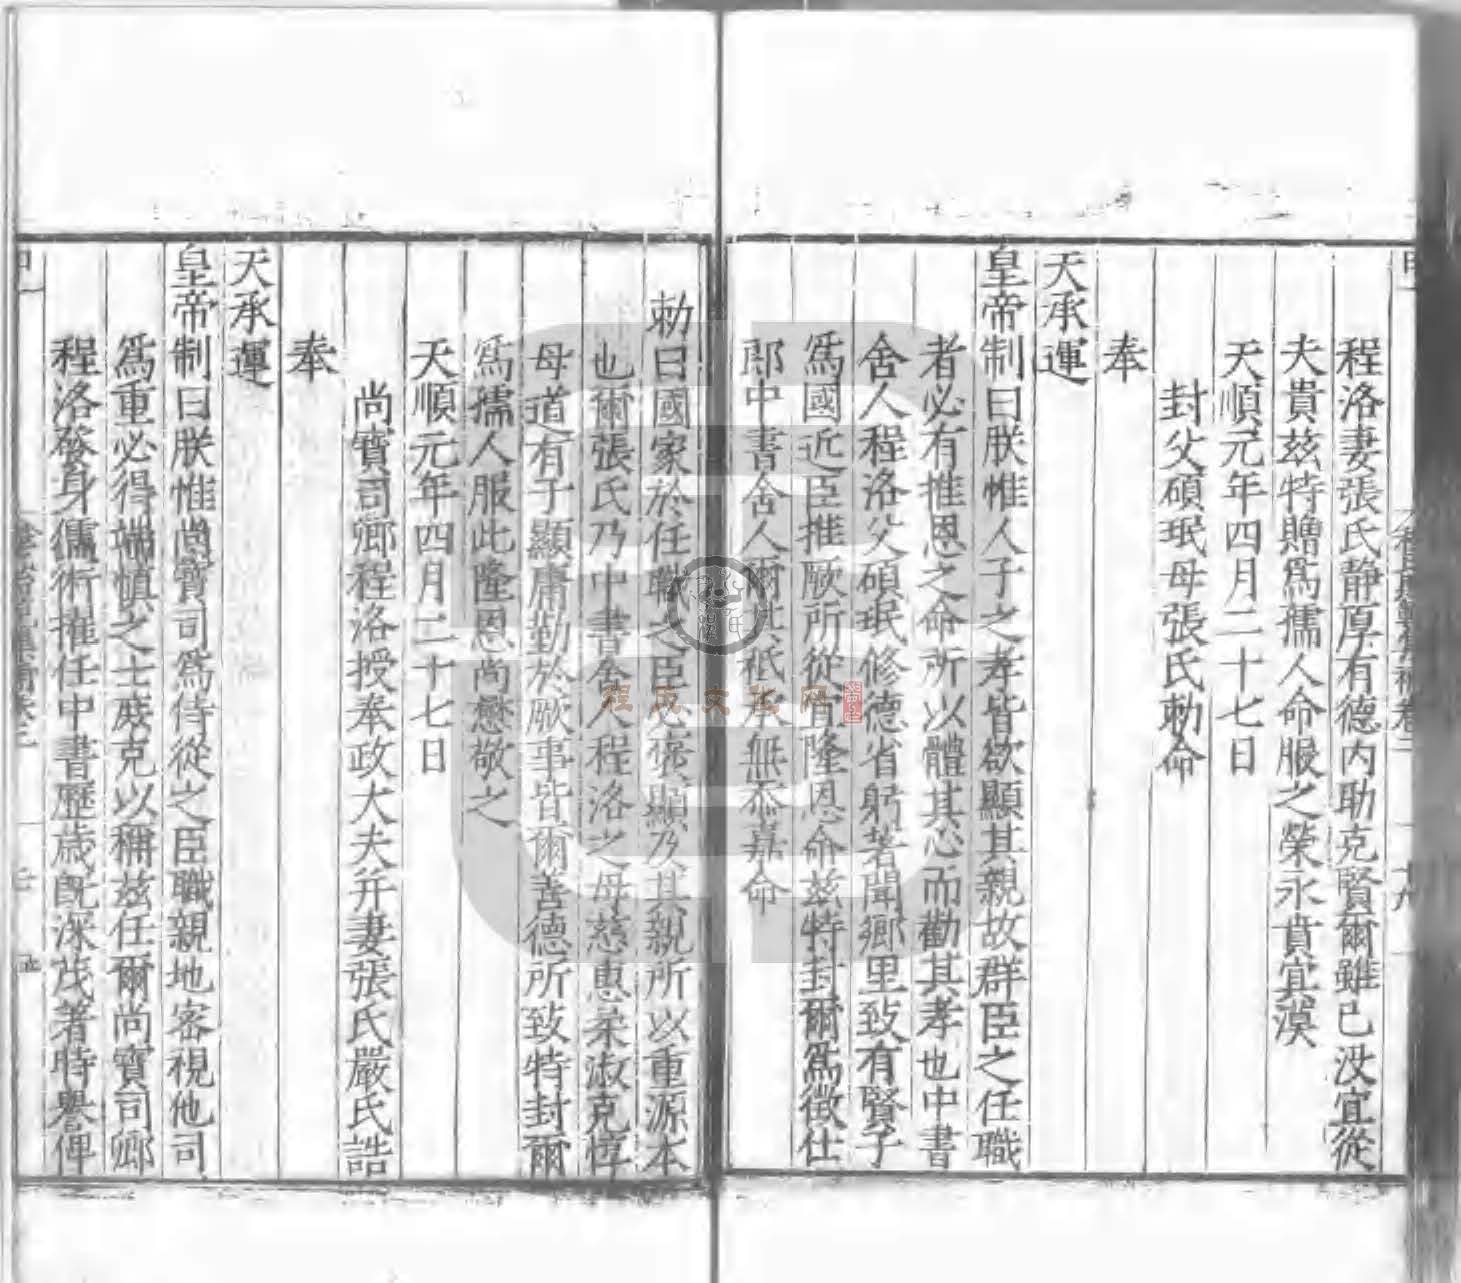 程洛妻張氏静厚有德内助克賢爾雖已没宜從
夫貴兹特贈爲孺人命服之榮永賁宜漠
天順元年四月二十七日
封父碩珉母張氏勅命
奉
天承運
皇帝制曰朕惟人子之孝皆欲顯其親故群臣之任職
者必有推恩之命所以體其心而勸其孝也中書
舍人程洛父碩珉修德省躬著聞鄉里致有賢子
爲國近臣推厥所從宜隆恩命兹特封爾爲徵仕
郎中書舍人爾其祇承無忝嘉命
勅曰國家於任職之臣必褒顯及其親所以重源本
也爾張氏乃中書舍人程洛之母慈惠柔淑克惇
母道有子顯庸勤於厥事皆爾善德所致特封爾
爲孺人服此隆恩尚懋敬之
天順元年四月二十七日
尚寶司卿程洛授奉政大夫并妻張氏嚴氏誥
奉
天承運
皇帝制曰朕惟尚寶司爲侍從之臣職親地密視他司
爲重必得端慎之士庶克以稱兹任爾尚寶司卿
程洛發身儒術擢任中書歷歲既深茂著時譽俾
程氏文化网
程氏